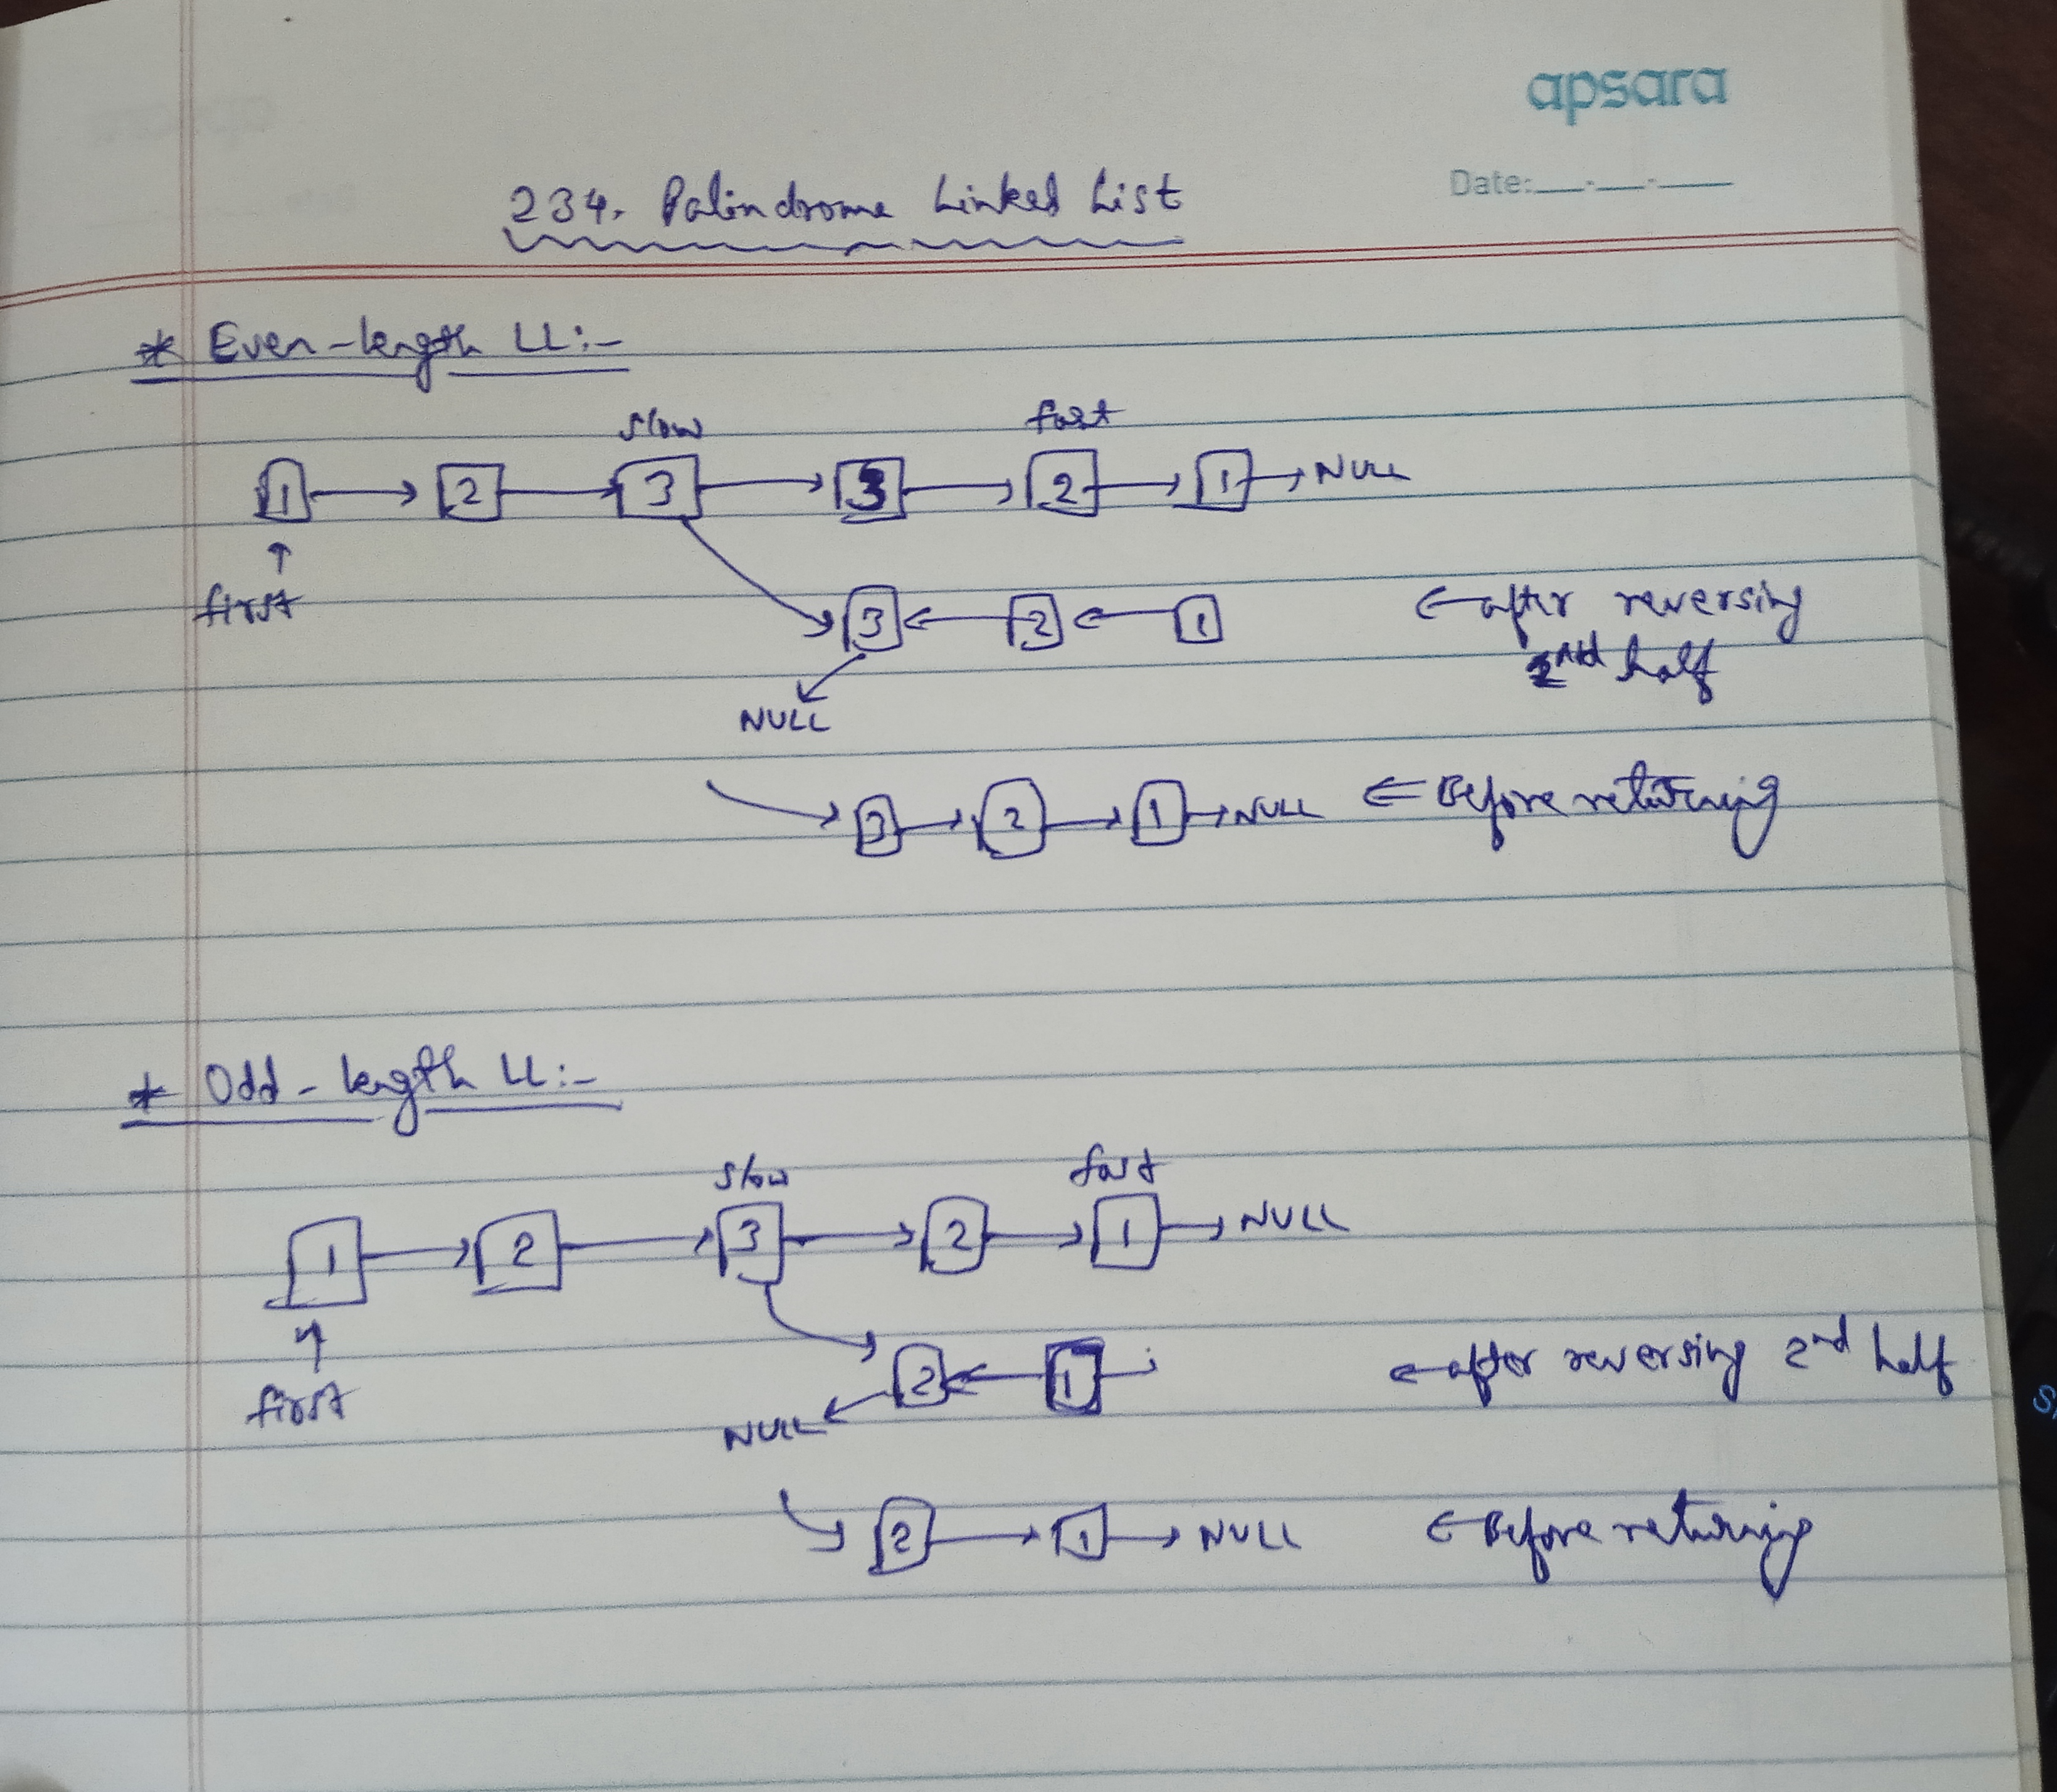 apsara
Date:
234. Palindrome Linked List
* Even-length LL:-
slow fast
1 → 2 → 3 → 3 → 2 → 1 → NULL
↑
first
3 ← 2 ← 1 ← after reversing
2nd half
NULL
→ 3 → 2 → 1 → NULL ← Before returning
* Odd-length LL:-
slow fast
1 → 2 → 3 → 2 → 1 → NULL
↑
first
2 ← 1 ← after reversing 2nd half
NULL
→ 2 → 1 → NULL ← Before returning